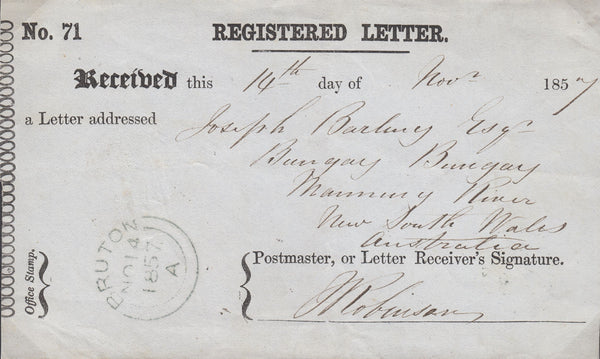 No. 71 REGISTERED LETTER.
Received this 14th day of Novr 1857
a Letter addressed Joseph Barling Esqr
Bungay Bungay
Manning River
New South Wales
Australia
Office Stamp.
BRUTON
NO 14
1857
A
Postmaster, or Letter Receiver's Signature.
Robinson